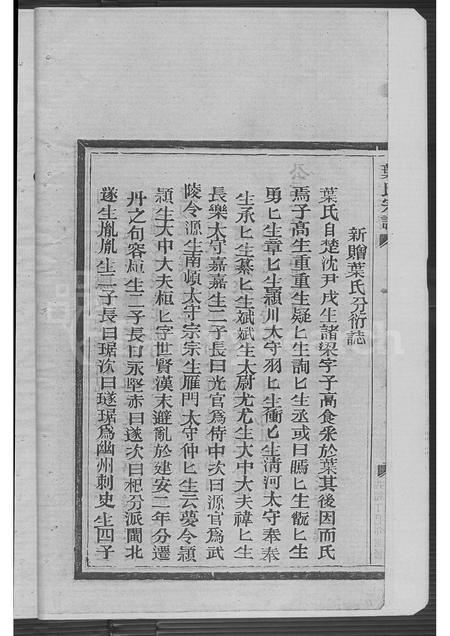 新贈葉氏分衍誌
葉氏自楚沈尹戌生諸梁字子高食釆於葉其後因而氏
焉子高生重重生疑匕生詢匕生丞或曰瞗匕生翫匕生
勇匕生章匕生頴川太守羽匕生衝匕生清河太守奉奉
生承匕生綦匕生斌斌生太尉尤尤生大中大夫禕匕生
長樂太守嘉嘉生二子長曰光官爲侍中次曰源官爲武
陵令源生南頓太守宗宗生雁門太守仲匕生云夢令顈
顈生大中大夫桓匕字世賢漢末避亂於建安二年分遷
丹之句容桓生二子長曰永堅赤曰遂次曰杞分派閩北
遂生胤胤生二子長曰琚次曰璲琚爲幽州刺史生四子
葉氏宗譜